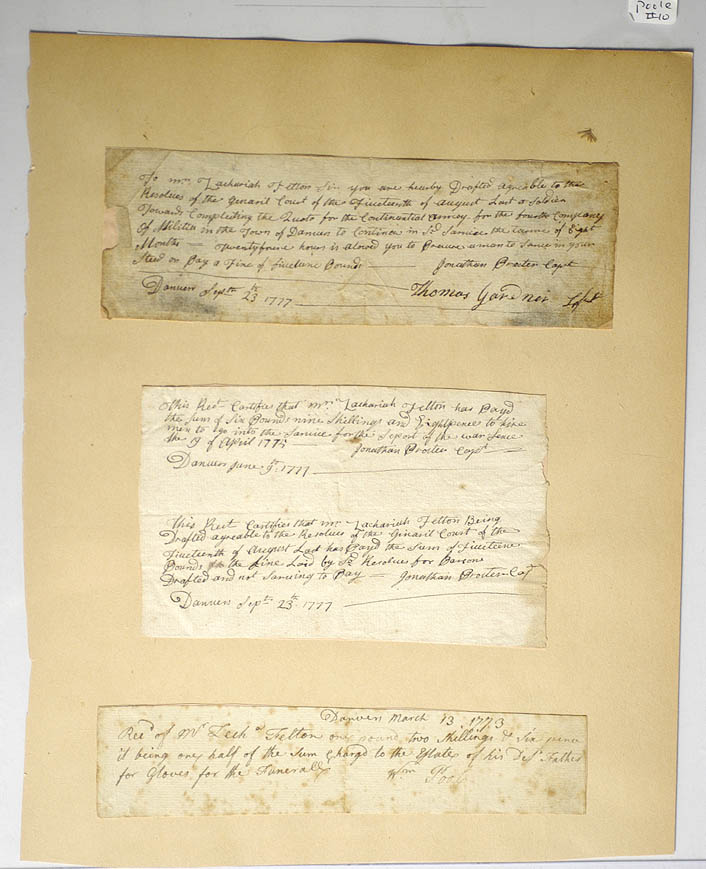 Poole
#10
To mr. Zachariah Felton Sir you are hearby Drafted agreable to the
Resolves of the Ginaril Court of the Fiueteenth of august Last a Soldier
Towards Compleiting the Quoto for the Continential armey for the fourth Company
Of Militia in the Town of Danvers to Continue in Sd Sarvice the tarme of Eight
Months — Twentyfoure hours is alowed you to Procure a man to Sarve in your
Steed or Pay a Fine of fiueteene Pounds — Jonathan Procter Capt
Danvers Septth 23th 1777 — Thomas Gardner
This Rect Certifies that Mr. Zachariah Felton has Payd
the Sum of Six Pounds nine Shillings and Eightpence to hire
men to go into the Sarvice for the Seport of the war Sence
the 9 of April 1775 — Jonathan Procter Capt —
Danvers June 9th 1777 —
This Rect Cartifies that mr. Zachariah Felton Being
Drafted agreable to the Resolves of the Ginaril Court of the
Fiueteenth of august Last has Payd the Sum of Fiueteene
Pounds the Fine Laid by Sd Resolves for Parsons
Drafted and not Sarving to Pay — Jonathan Procter Capt
Danvers Septth 23th 1777 —
Danvers March 13 1773
Recd of Mr Zechh Felton one pound two Shillings & Six pence
it being one half of the Sum Chargd to the Estate of his Desd Father
for Gloves for the Funerall Wm Pool